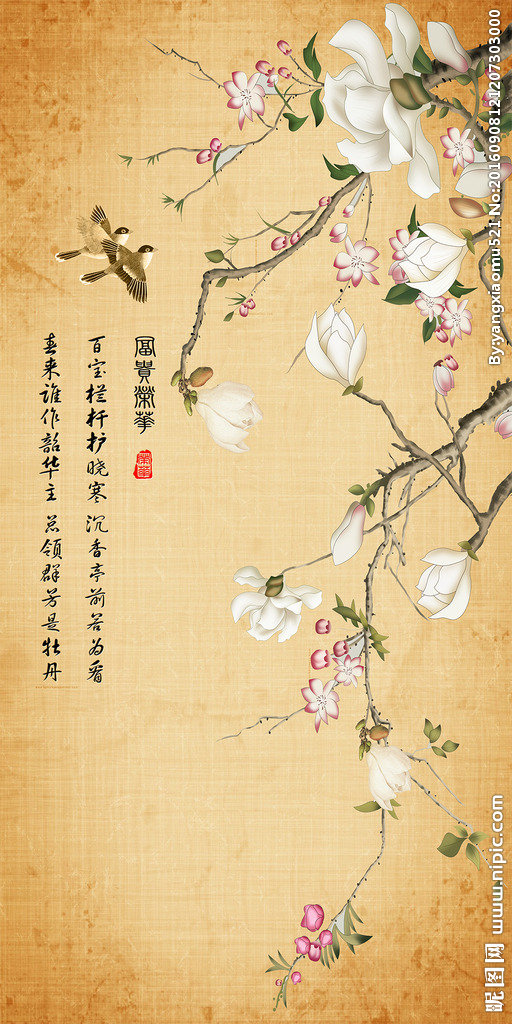 富貴榮華
百宝栏杆护晓寒 沉香亭前若为看
春来谁作韶华主 总领群芳是牡丹
By:yangxiaomu521 No:20160908121207303000
昵图网 www.nipic.com